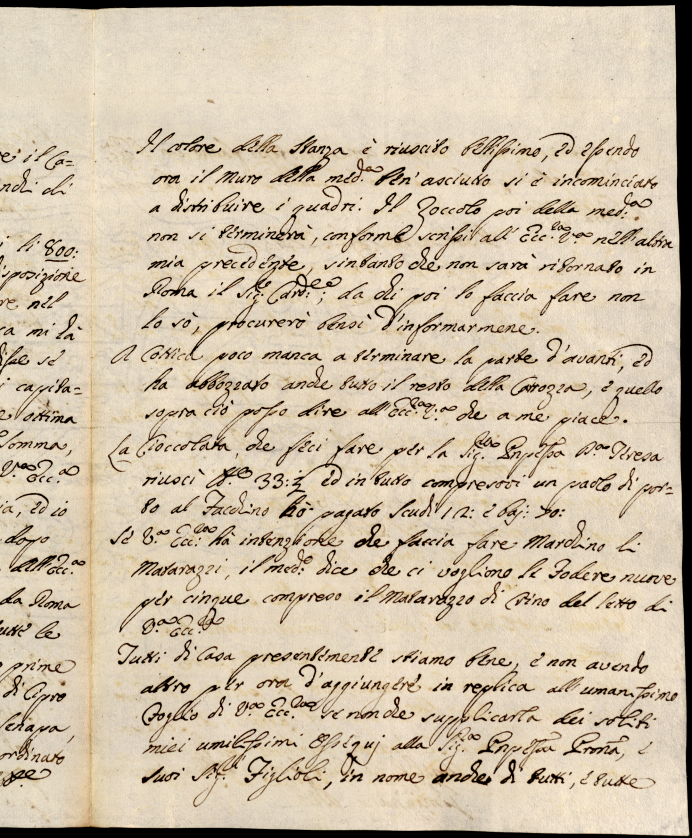 re il Ca=
nchi di
i li 800:
disposizione
re nel
ca mi dà
disse se
i capita=
e ottima
Somma,
V.ra Ecc.a
ia, ed io
dopo
dell'Ecc.a
da Roma
tutte le
prime
di Cipro
Senapa,
ordinato
Il colore della Stanza è riuscito bellissimo, ed essendo
ora il muro della med.a ben' asciutto si è incominciato
a distribuire i quadri. Il Zoccolo poi della med.a
non si terminerà, conforme scrissi all' Ecc.za V.ra nell'altra
mia precedente, sintanto che non sarà ritornato in
Roma il Sig.r Card.le; da chi poi lo faccia fare non
lo sò, procurerò bensì d'informarmene.
Il Cottica poco manca a terminare la parte d'avanti, ed
ha abbozzato anche tutto il resto della Carozza, e quello
sopra ciò posso dire all'Ecc.za V.ra che a me piace.
La Cioccolata, che feci fare per la Sig.ra Pnpessa D.a Teresa
riuscì 33: ed in tutto compresovi un paolo di por=
to al Facchino hò pagato Scudi 12: e baj: 70:
Se V.ra Ecc.za hà intenzione che faccia fare Marchino li
Matarazzi, il med.o dice che ci vogliono le Fodere nuove
per cinque compreso il Matarazzo di Crino del letto di
V.ra Ecc.za
Tutti di Casa presentemente stiamo bene, e non avendo
altro per ora d'aggiungere in replica all'umanissimo
Foglio di V.ra Ecc.za se non che supplicarla dei soliti
miei umilissimi Ossequj alla Sig.ra Pnpessa Prona, e
suoi Sig.i Figlioli, in nome anche di tutti, e tutte